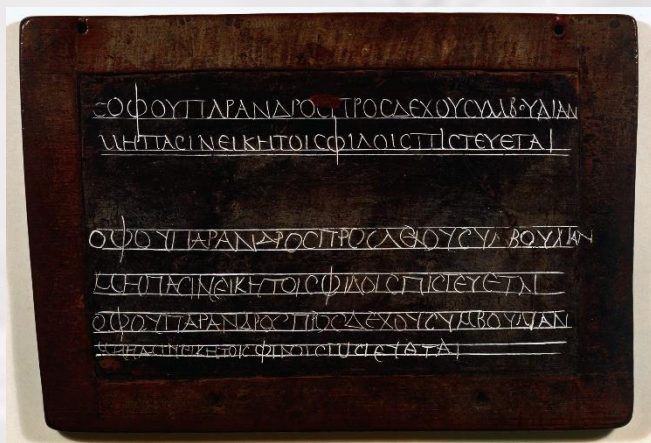 CΟΦΟΥΠΑΡΑΝΔΡΟCΠΡΟCΔΕΧΟΥCΥΜΒΟΥΛΙΑΝ
ΜΗΠΑCΙΝΕΙΚΗΤΟΙCΦΙΛΟΙCΠΙCΤΕΥΕΤΑΙ
ΟΦΟΥΠΑΡΑΝΔΡΟCΠΡΟCΔΕΧΟΥCΥΜΒΟΥΛΙΑΝ
ΜΗΠΑCΙΝΕΙΚΗΤΟΙCΦΙΛΟΙCΠΙCΤΕΥΕΤΑΙ
ΟΦΟΥΠΑΡΑΝΔΡΟCΠΡΟCΔΕΧΟΥCΥΜΒΟΥΛΙΑΝ
ΜΗΠΑCΙΝΕΙΚΗΤΟΙCΦΙΛΟΙC